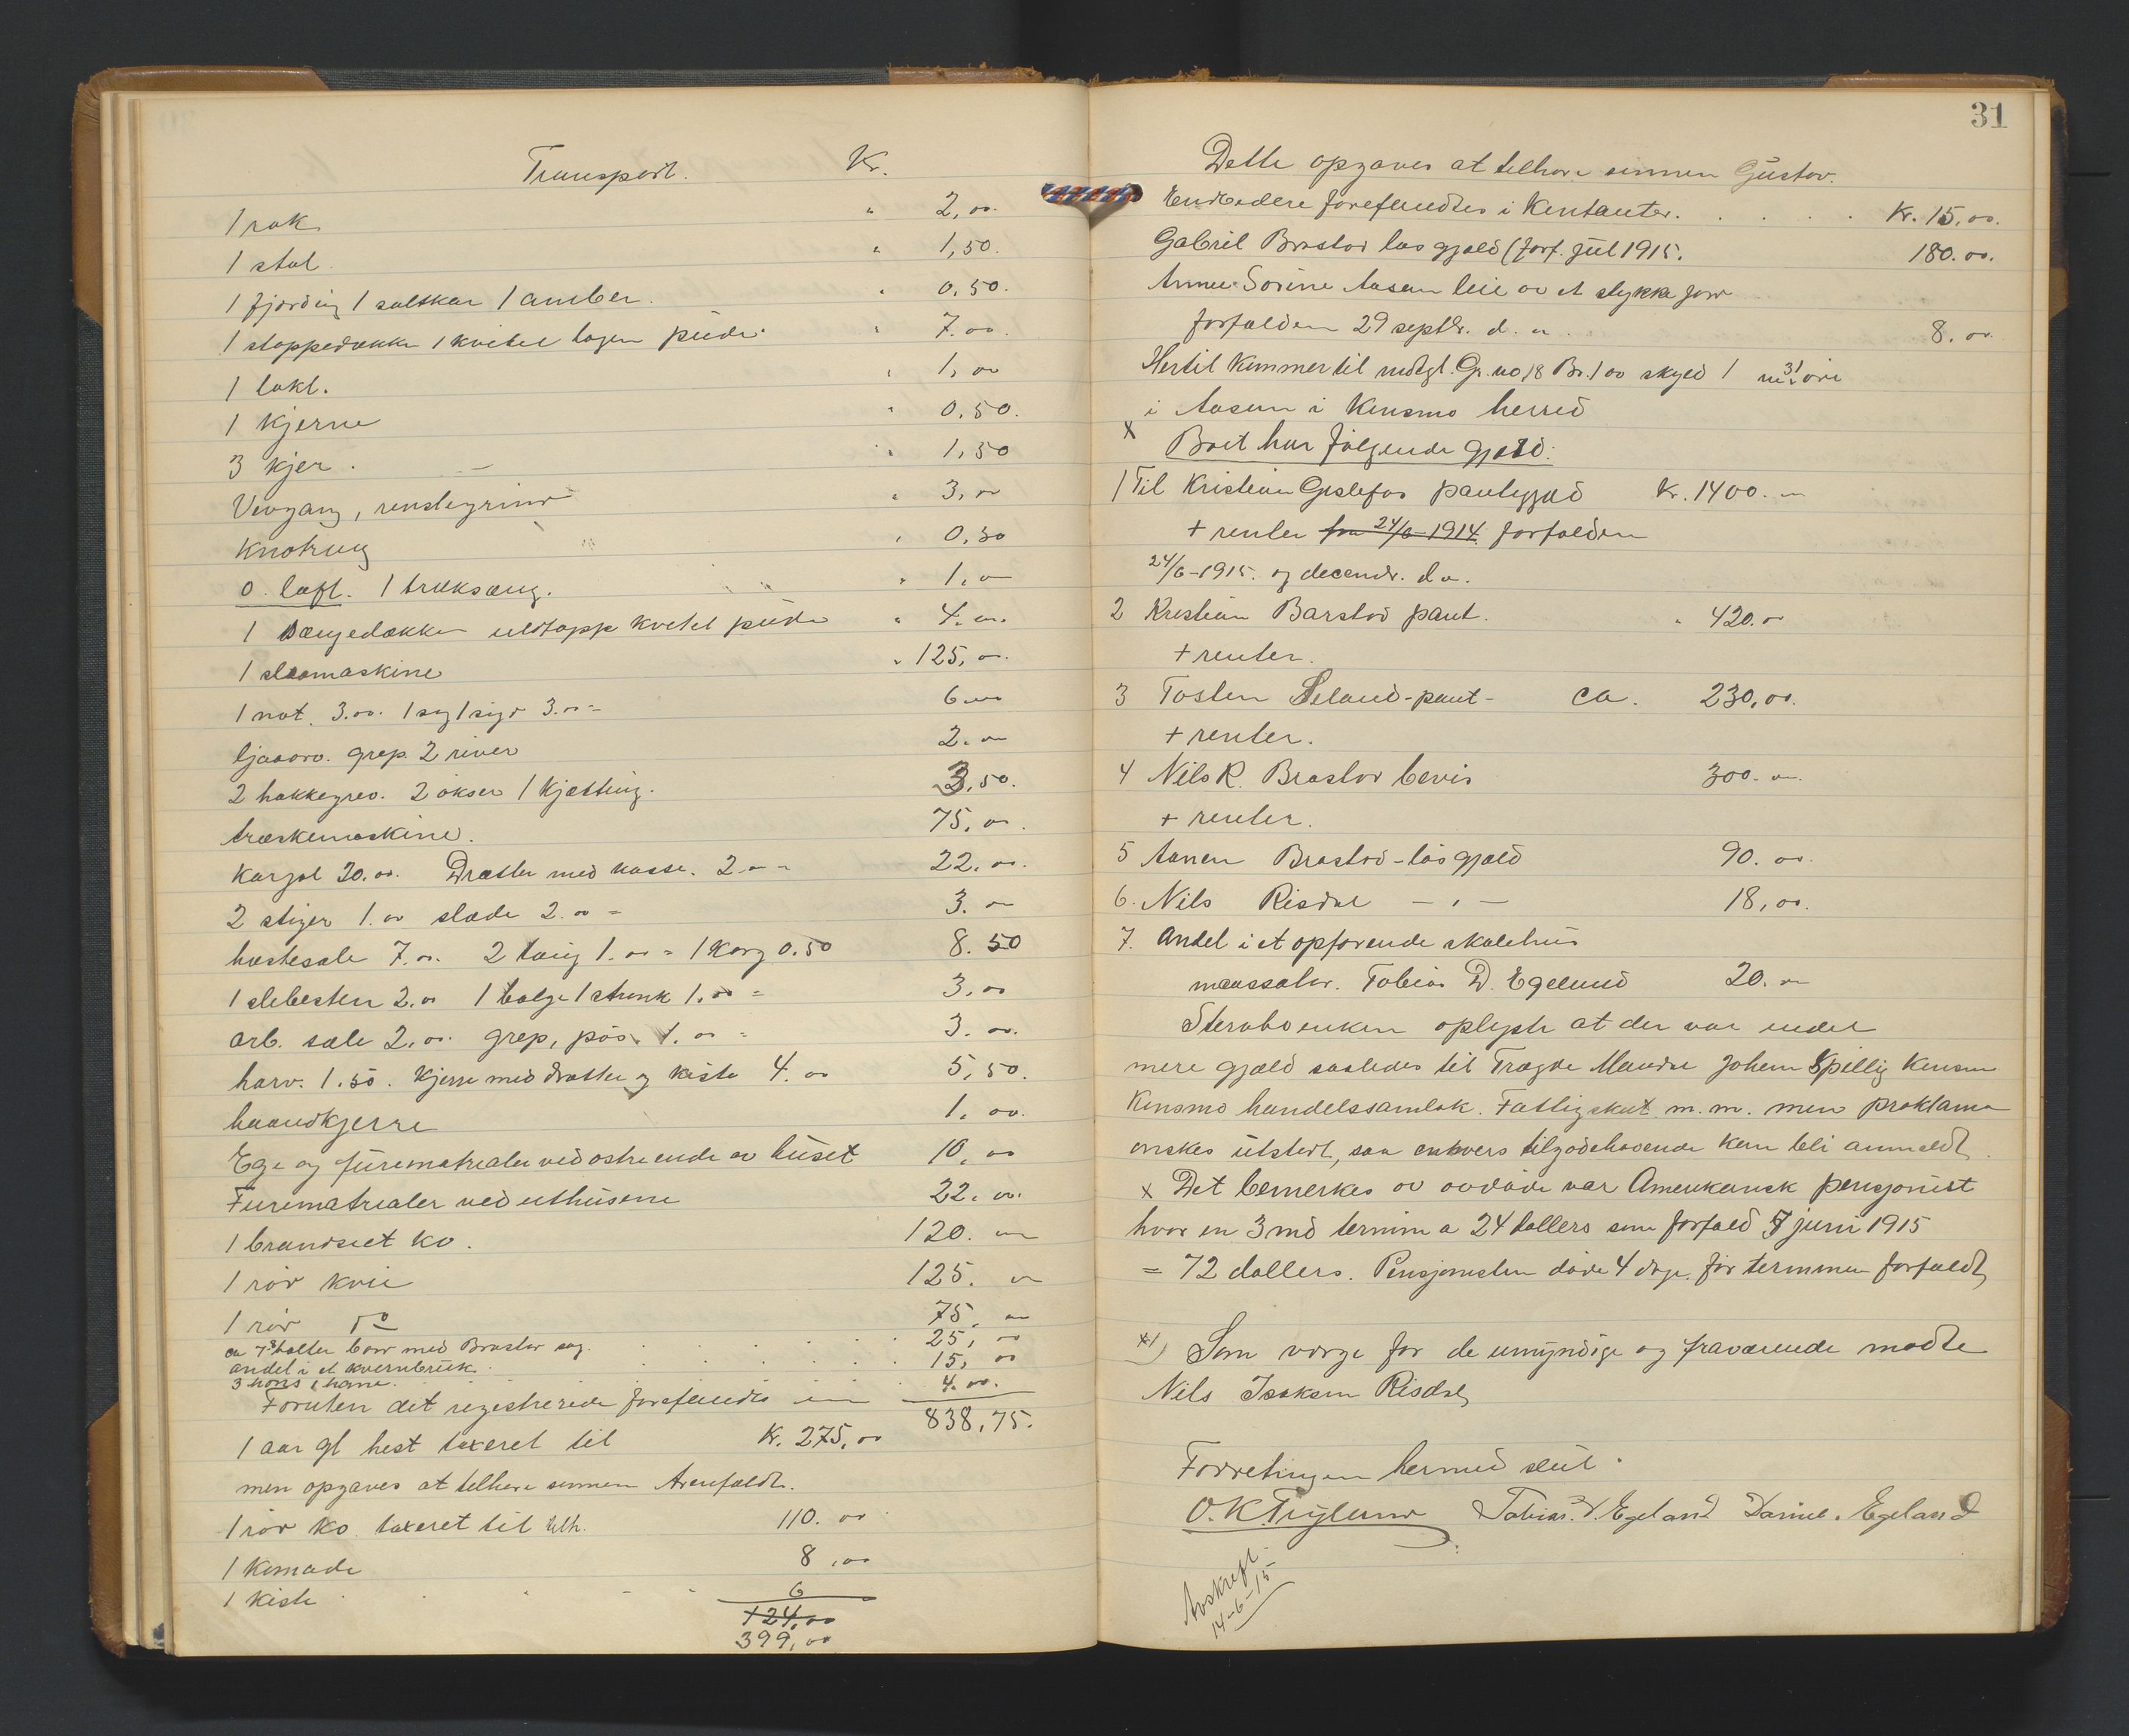 Transport. Kr.
1 rok " 2,00.
1 stol. " 1,50.
1 fjørding 1 saltkar 1 amber. " 0,50.
1 stoppedække 1 kvitel lagen püde " 7.00.
1 lokt. " 1,00
1 kjerne " 0,50.
3 kjer. " 1,50
Vevgang, rendegrind " 3,00
Knotrug " 0,50
o. loft. 1 træksæng. " 1,00
1 sængedække uldtæpp kvitel püde " 4.00.
1 slaamaskine " 125,00.
1 not. 3.00. 1 sag 1 sigd 3.00 = 6.00
ljaaorv. grep. 2 river 2.00
2 hakkegrev. 2 økser 1 kjætting. 3,50.
træskemaskine. 75,00.
Karjol 20.00. Drætter med kasse. 2.00 = 22.00.
2 stiger 1.00 slæde 2.00 = 3.00
hestesæle 7.00. 2 taug 1.00 = 1 korg 0.50 8.50
1 slibesten 2.00 1 balge 1 strunk 1.00 = 3,00
arb. sæle 2.00. grep, pös. 1.00 = 3.00.
harv. 1.50. Kjerre med drætter og kiste 4.00 5,50.
haandkjerre 1.00.
Ege og fürematrialer ved østre ende av hüset 10,00
Furematrialer ved uthüsene 22.00.
1 brandset ko. 120.00
1 rød kvie 125.00
1 rød do 75.00
ca 7 tolter bord med Brastad sag. 25,00
andel i et kvernbrük. 15,00
3 höns 1 hane. 4.00.
Foruten det registrerede forefandtes en 838,75.
1 aar gl hest taxeret til Kr. 275,00
men opgaves at tilhøre sønnen Arenfeldt.
1 rød ko. taxeret til tilh. 110.00
1 komode 8,00
1 kiste 6
124,00
399,00
31
Dette opgaves at tilhøre sønnen Güstav.
Endvidere forefandtes i Kontanter. Kr. 15,00.
Gabriel Brastad løs gjæld (forf. jül 1915. 180.00.
Anne Sorine Aasen leie av et stykke jord
forfalden 29 septbr. d.a. 8.00
Hertil kommer til vedtgt. Gr. no 18 Br. 1 av skyld 1 m 31 øre
i Aasen i Konsmo herred
x Boet har følgende gjæld:
1 Til Kristian Gislefos pantegjæld Kr. 1400.00
+ renter fra 24/6-1914. forfalden
24/6-1915. og decembr. d.a.
2 Kristian Barstad pant. " 420.00
+ renter.
3 Tosten Seland-pant- ca. 230,00.
+ renter.
4 Nils R. Brastad bevis 300.00.
+ renter.
5 Aanen Brastad-løsgjæld 90.00.
6. Nils Risdal - " - 18,00.
7. Andel i et opførende skolehüs
Tobias D. Egeland 20.00
Stervboenken oplyste at der var endel
mere gjæld saaledes til Trægde Mandal Johan Spillig Konsmo
Konsmo handelssamlak. Fattigskat m.m. men proklama
ønskes ütstedt, saa enhvers tilgodehavende kan bli anmeldt.
x Det bemerkes av avdøde var Amerikansk pensjonist
hvor en 3 md termin a 24 dollers som forfald 7 juni 1915
= 72 dollers. Pensjonisten døde 4 dage før terminen forfaldt,
x1) Som verge for de umyndige og fraværende mødte
Nils Isaksen Risdal,
Forretningen hermed slüt.
O.K. Tryland Tobias. D. Egeland Daniel. Egeland
Avskrift.
14-6-15